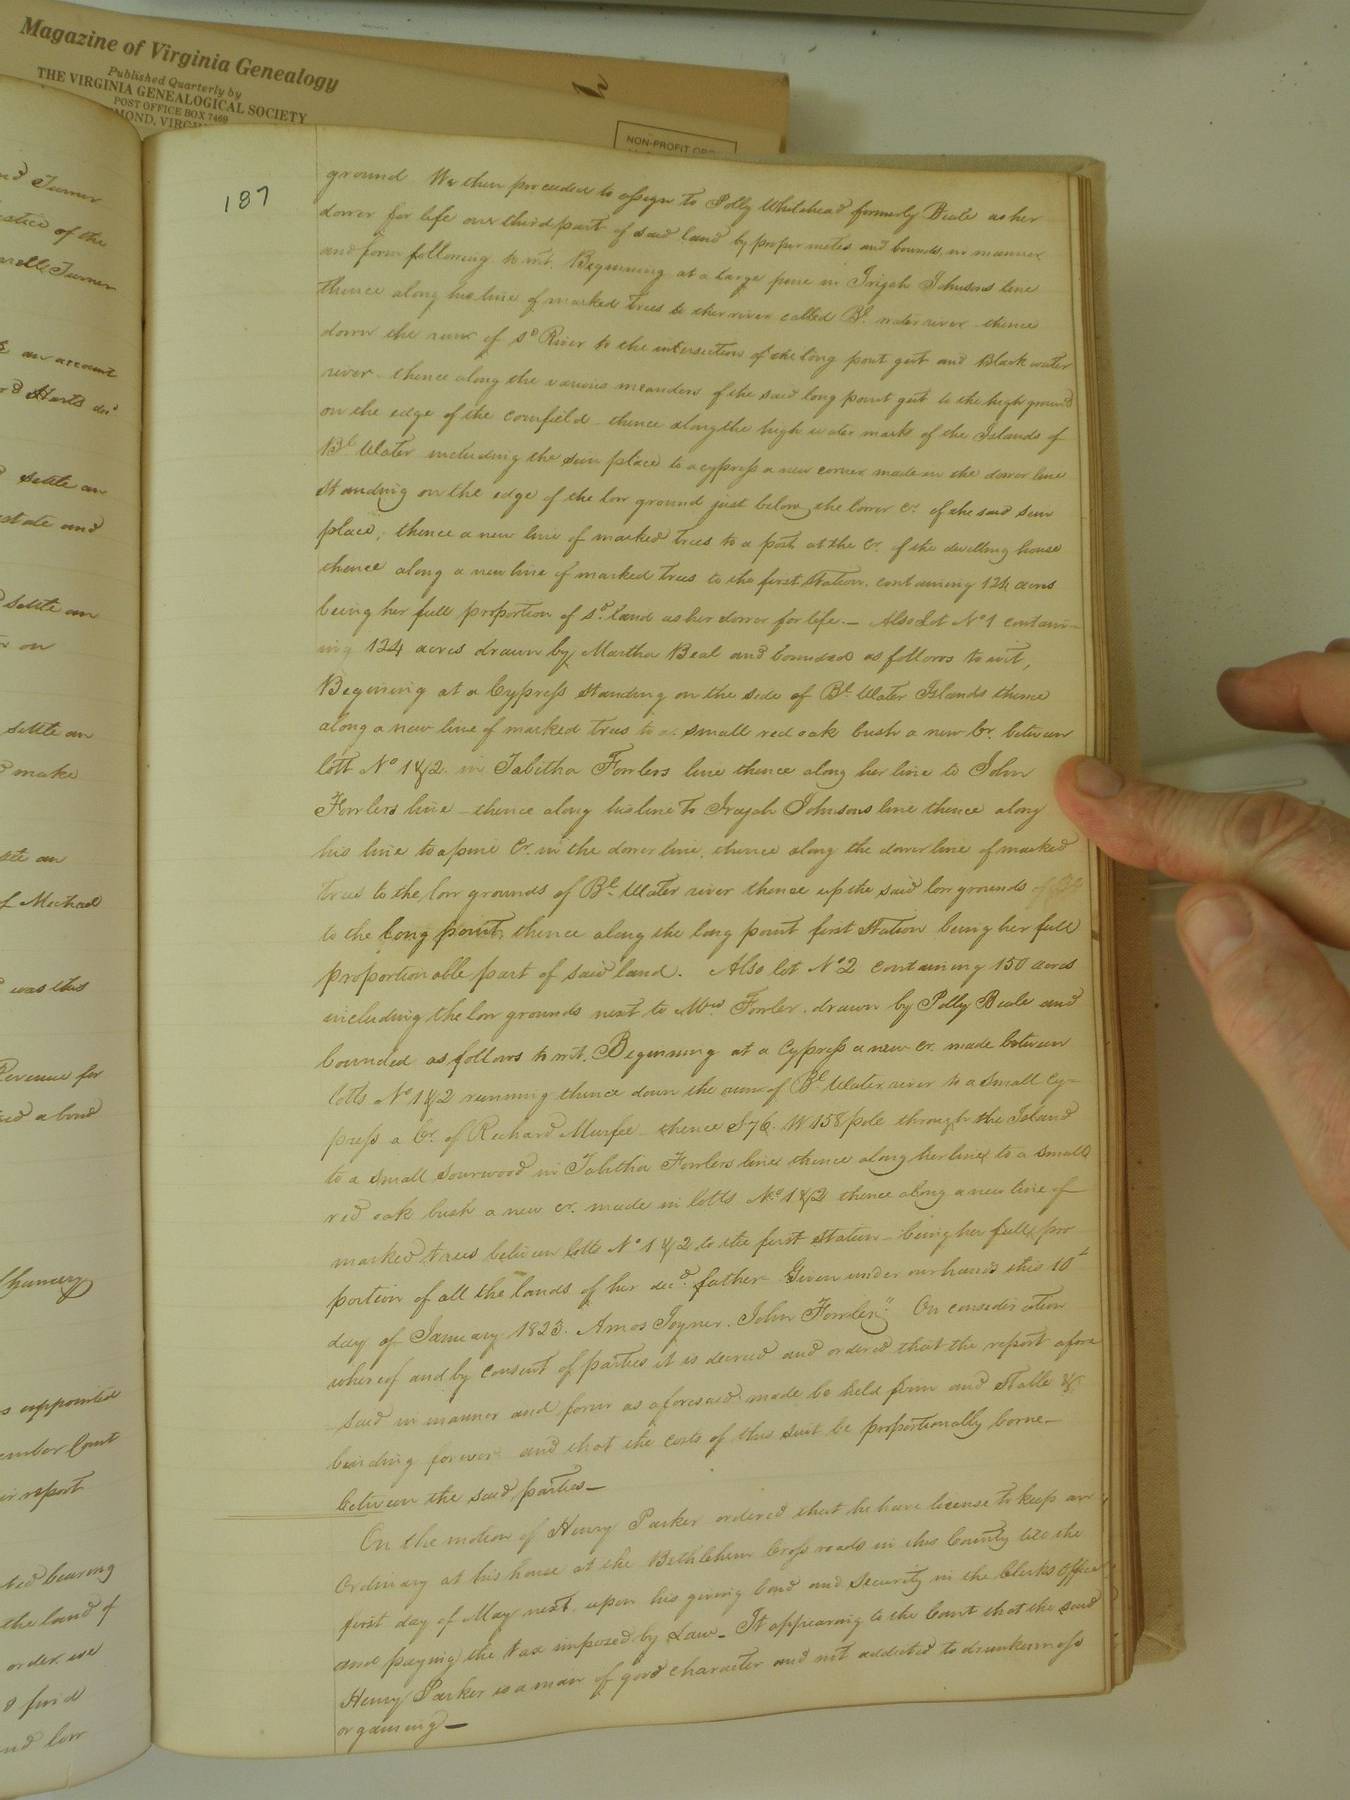 Magazine of Virginia Genealogy
Published Quarterly by
THE VIRGINIA GENEALOGICAL SOCIETY
POST OFFICE BOX 7469
MOND, VIRG
NON-PROFIT ORG
187
ground We then proceeded to assign to Polly Whitehead formerly Beale as her
dower for life one third part of said land by proper metes and bounds, in manner
and form following to wit. Beginning at a large pine in Irijah Johnsons line
thence along his line of marked trees to the river called Bl. water river thence
down the run of sd River to the intersection of the long point gut and Black water
river thence along the various meanders of the said long point gut to the high ground
on the edge of the cornfield thence along the high water mark of the Islands of
Bl Water including the sein place to a cypress a new corner made in the dower line
standing on the edge of the low ground just below the lower Cr. of the said sein
place, thence a new line of marked trees to a post at the Cr. of the dwelling house
thence along a new line of marked trees to the first station. containing 124 acres
being her full proportion of sd land as her dower for life. — Also Lot No 1 contain-
ing 124 acres drawn by Martha Beal and bounded as follows to wit,
Begining at a Cypress standing on the side of Bl. Water Islands thence
along a new line of marked trees to a small red oak bush a new Cr. between
lott No 1 & 2 in Tabitha Fowlers line thence along her line to John
Fowlers line — thence along his line to Irajah Johnsons line thence along
his line to a pine Cr. in the dower line, thence along the dower line of marked
trees to the low grounds of Bl. Water river thence up the said low grounds of
to the long point, thence along the long point first station being her full
proportionable part of said land. Also lot No 2 containing 150 acres
including the low grounds next to Mrs Fowler. drawn by Polly Beale and
bounded as follows to wit. Beginning at a Cypress a new cr. made between
lotts No 1 & 2 running thence down the run of Bl. Water river to a small Cy-
press a Cr. of Richard Murfee thence S 76. W 158 pole through the Island
to a small sourwood in Tabitha Fowlers line thence along her line to a small
red oak bush a new cr. made in lotts No. 1 & 2 thence along a new line of
marked trees between lotts No 1 & 2 to the first station — being her full pro
portion of all the lands of her decd. father — Given under our hands this 10th
day of January 1823. Amos Joyner. John Fowler" On consideration
whereof and by consent of parties it is decreed and ordered that the report afore
said in manner and form as aforesaid made be held firm and stable &
binding forever and that the costs of this suit be proportionally borne —
between the said parties —
On the motion of Henry Parker ordered that he have license to keep an
Ordinary at his house at the Bethlehem Cross roads in this County till the
first day of May next. upon his giving bond and security in the Clerks office
and paying the tax imposed by Law — It appearing to the Court that the said
Henry Parker is a man of good character and not addicted to drunkenness
or gaming —